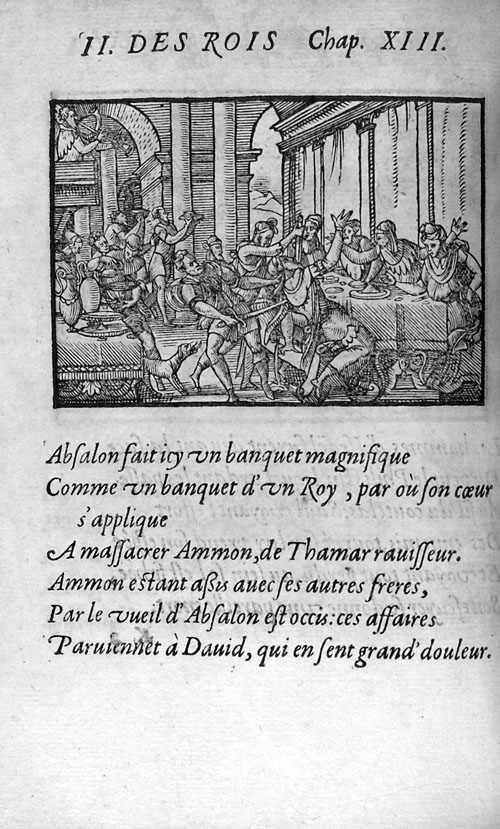 II. DES ROIS Chap. XIII.
Abſalon fait icy vn banquet magnifique
Comme vn banquet d'vn Roy, par où ſon cœur
s'applique
A maſſacrer Ammon, de Thamar rauiſſeur.
Ammon eſtant aßis auec ſes autres freres,
Par le vueil d'Abſalon eſt occis: ces affaires
Paruiennẽt à Dauid, qui en ſent grand' douleur.